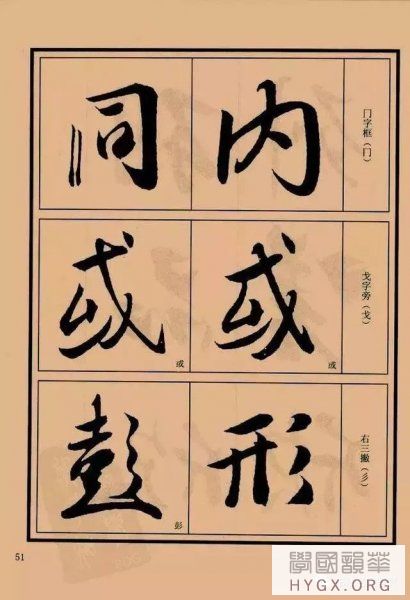 冂字框（冂）
内
同
戈字旁（戈）
或
或
或
或
右三撇（彡）
形
彭
彭
51
學國韻華
HYGX.ORG